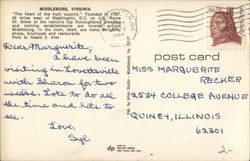 MIDDLEBURG, VIRGINIA
"The heart of the hunt country." Founded in 1787,
40 miles west of Washington, D.C. on U.S. Route
50. Some of the nation's top thoroughbred breeding
and training establishments are located around
Middleburg. In the town, itself, are many delightful
shops, boutiques and restaurants.
Photo by Howard S. Allen
Dear Marguerite,
I have been
visiting in Lovettsville
with Sharon for two
weeks. Lots to do all
the time and lots to
see.
Love,
Syl
post card
MISS MARGUERITE
RECKER
2534 COLLEGE AVENUE
QUINCY, ILLINOIS
62301
2-